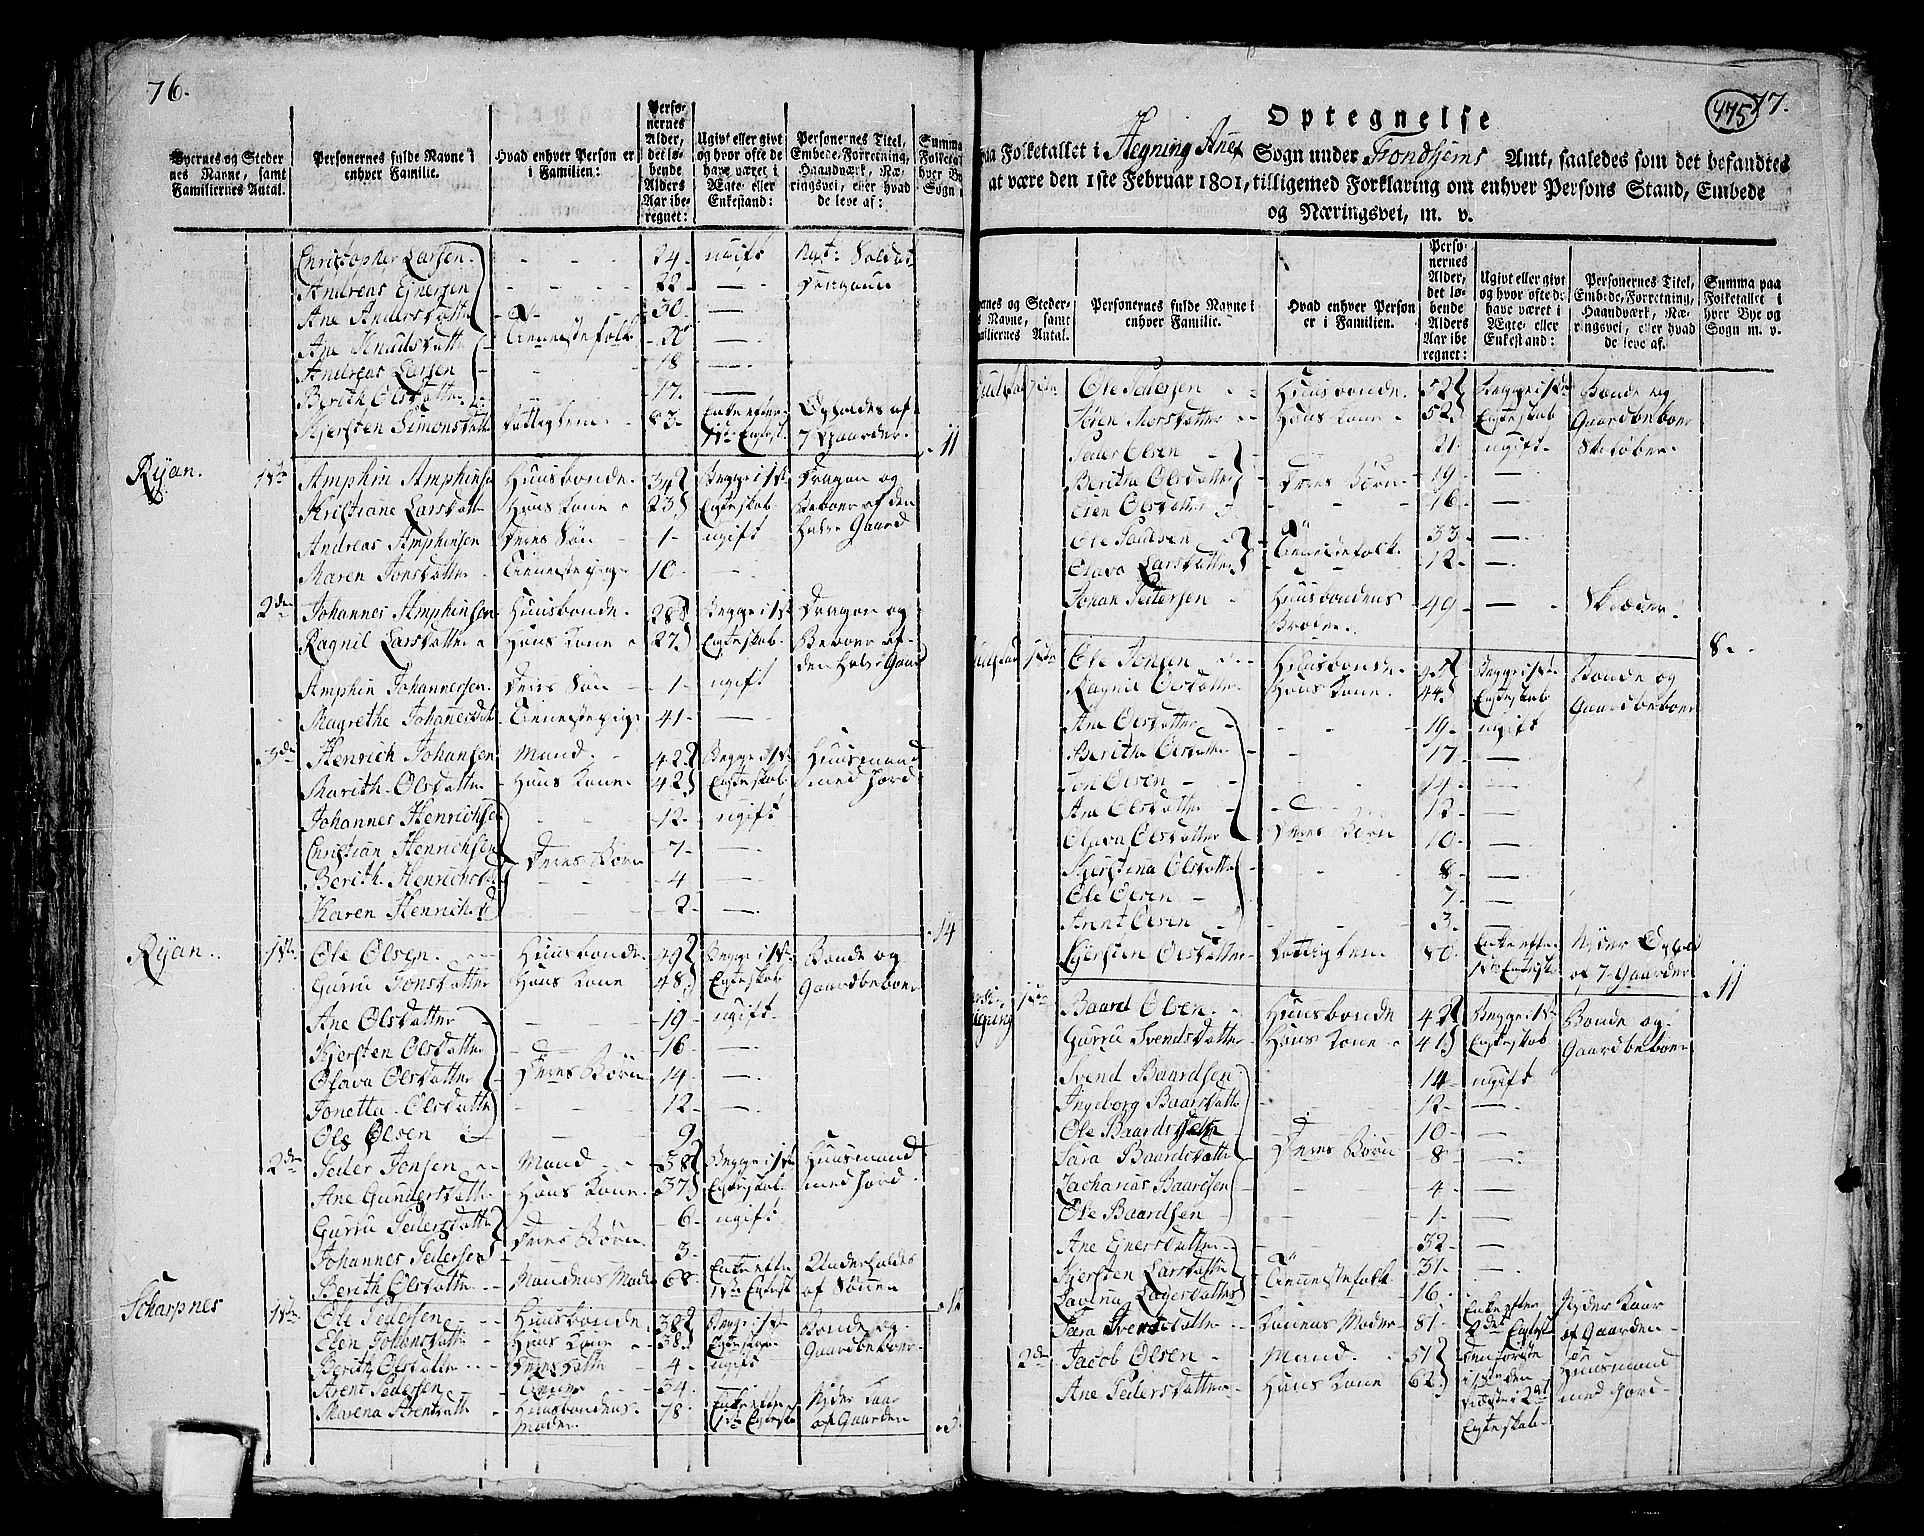 76.
Byernes og Steder
nes Navne, samt
Familiernes Antal.
Personernes fulde Navne i
enhver Familie.
Hvad enhver Person er
i Familien:
Perso-
nernes
Alder,
det lø-
bende
Alders
Aar ibe-
regnet:
Ugivt eller givt
og hvor ofte de
have været i
Ægte- eller
Enkestand:
Personernes Titel,
Embede, Forretning,
Haandværk, Næ-
ringsvei, eller hvad
de leve af:
Summa
Folketal
hver By
Sogn
Christopher Larsen - - - 24. ugift Nat: Soldat
Andreas Ejnersen - - - 22 - Dragoun
Ane Andersdatter - 30. —
Ane Knudsdatter Tienestefolk - 20 —
Andreas Larsen - - 18 —
Berith Olsdatter - - 17. —
Kjersten Simonsdatter Fattiglem - 83. Enke efter Opholdes af
1ste Egtesk. 7 Gaarder. 11
Ryan. 1ste Amphin Amphinsen Huusbonde. 34 Begge i 1ste Dragon og
Kristiane Larsdatter Hans Kone 23 Egteskab Beboer af den
Andreas Amphinsen Deres Søn 1 ugift halve Gaard
Maren Jonsdatter Tienestepige 10. —
2den Johannes Amphinsen Huusbonde. 28 Begge i 1ste Dragon og
Ragnil Larsdatter Hans Kone 27 Egteskab. Beboer af
den halve Gaard
Amphin Johannessen. Deres Søn 1 ugift
Magrethe Johannesdatter Tienestepige 41 —
3die Henrich Johansen Mand. 42 Begge i 1ste Huusmand
Marith Olsdatter Hans Kone 42 Egteskab med Jord
Johannes Henrichsen - - 12. ugift
Christian Henrichsen Deres Børn 7 —
Berith Henrichsdatter - - 4 —
Karen Henrichsd - - 2 —
14
Ryan. 1ste Ole Olsen. Huusbonde. 49 Begge i 1ste Bonde og
Gurru Jonsdatter Hans Kone 48 Egteskab Gaardbeboer
Ane Olsdatter - - 19 ugift
Kjersten Olsdatter - 16 —
Olava Olsdatter Deres Børn 14 —
Jonetta Olsdatter - - 12 —
Ole Olsen - - 9
2den Peder Jensen Mand 38 Begge i 1ste Huusmand
Ane Gundersdatter Hans Kone 37 Egteskab med Jord.
Gurru Pedersdatter Deres Børn 6 ugift
Johannes Pedersen 3.
Berith Olsdatter Mandens Moder 68 Enke efter 1ste Egtesk Underholdes
af Sønnen
Scharpnes 1ste Ole Pedersen Huusbonde 38 Begge i 1ste Bonde og
Elen Johansdatter Hans Kone 38 Egteskab Gaardbeboer
Berith Olsdatter Deres Datter 4 ugift
Arent Pedersen 34.
Marena Arentsdatter Huusbondens
Moder. 78. Enke efter
1ste Egtesk Nyder Kaar
af Gaarden
475 77.
Optegnelse
paa Folketallet i Hegning Anex Sogn under Trondhjems Amt, saaledes som det befandtes
at være den 1ste Februar 1801, tilligemed Forklaring om enhver Persons Stand, Embede
og Næringsvei, m. v.
nes og Steder-
Navne, samt
liernes Antal.
Personernes fulde Navne i
enhver Familie.
Hvad enhver Person
er i Familien.
Perso-
nernes
Alder,
det lø-
bende
Alders
Aar ibe-
regnet:
Ugivt eller givt
og hvor ofte de
have været i
Ægte- eller
Enkestand:
Personernes Titel,
Embede, Forretning,
Haandværk, Næ-
ringsvei, eller hvad
de leve af.
Summa paa
Folketallet i
hver Bye og
Sogn m. v.
Ole Pedersen Huusbonde. 52 Begge i 1ste Bonde og
Hans Kone 52 Egteskab Gaardbeboer
Peder Olsen 21. ugift
Beritha Olsdatter Deres Børn 19 —
Elen Olsdatter - 16 —
Ole Paulsen 33 —
Olava Larsdatter Tienestefolk. 12 —
Jonan Pedersen Huusbondens
Broder. 49 — Skræder.
8.
1ste Ole Jonsen Huusbonde. 45 Begge i 1ste Bonde og
Ragnil Olsdatter Hans Kone. 44 Egteskab Gaardbeboer
Ane Olsdatter - 19 ugift
Beritha Olsdatter - 17 —
Jon Olsen - 14 —
Ane Olsdatter 12 —
Olava Olsdatter Deres Børn 10 —
Kjerstina Olsdatter - 8 —
Ole Olsen - 7 —
Arent Olsen - 3 —
Kjersten Olsdatter Fattiglem 80 Enke efter Nyder Ophold
1ste Egtesk af 7 Gaarder
11
1ste Baard Olsen. Huusbonde 42 Begge i 1ste Bonde og
Gurru Svendsdatter Hans Kone 41 Egteskab Gaardbeboer
Svend Baardsen 14 ugift
Ingeborg Baardsdatter - 12 —
Ole Baardsen 10 —
Sara Baardsdatter Deres Børn 8 —
Zacharias Baardsen - 4 —
Ole Baardsen - 1 —
Ane Ejnersdatter - 32 —
Kjersten Larsdatter Tienestefolk 31 —
16 —
Sara Svendsdatter Konens Moder 81 Enke efter
2det Egtesk Nyder Kaar
af Gaarden
2den Jacob Olsen Mand. 51 den første
i 1ste den Huusmand
Ane Pedersdatter Hans Kone 62 i 2det med Jord
Egteskab